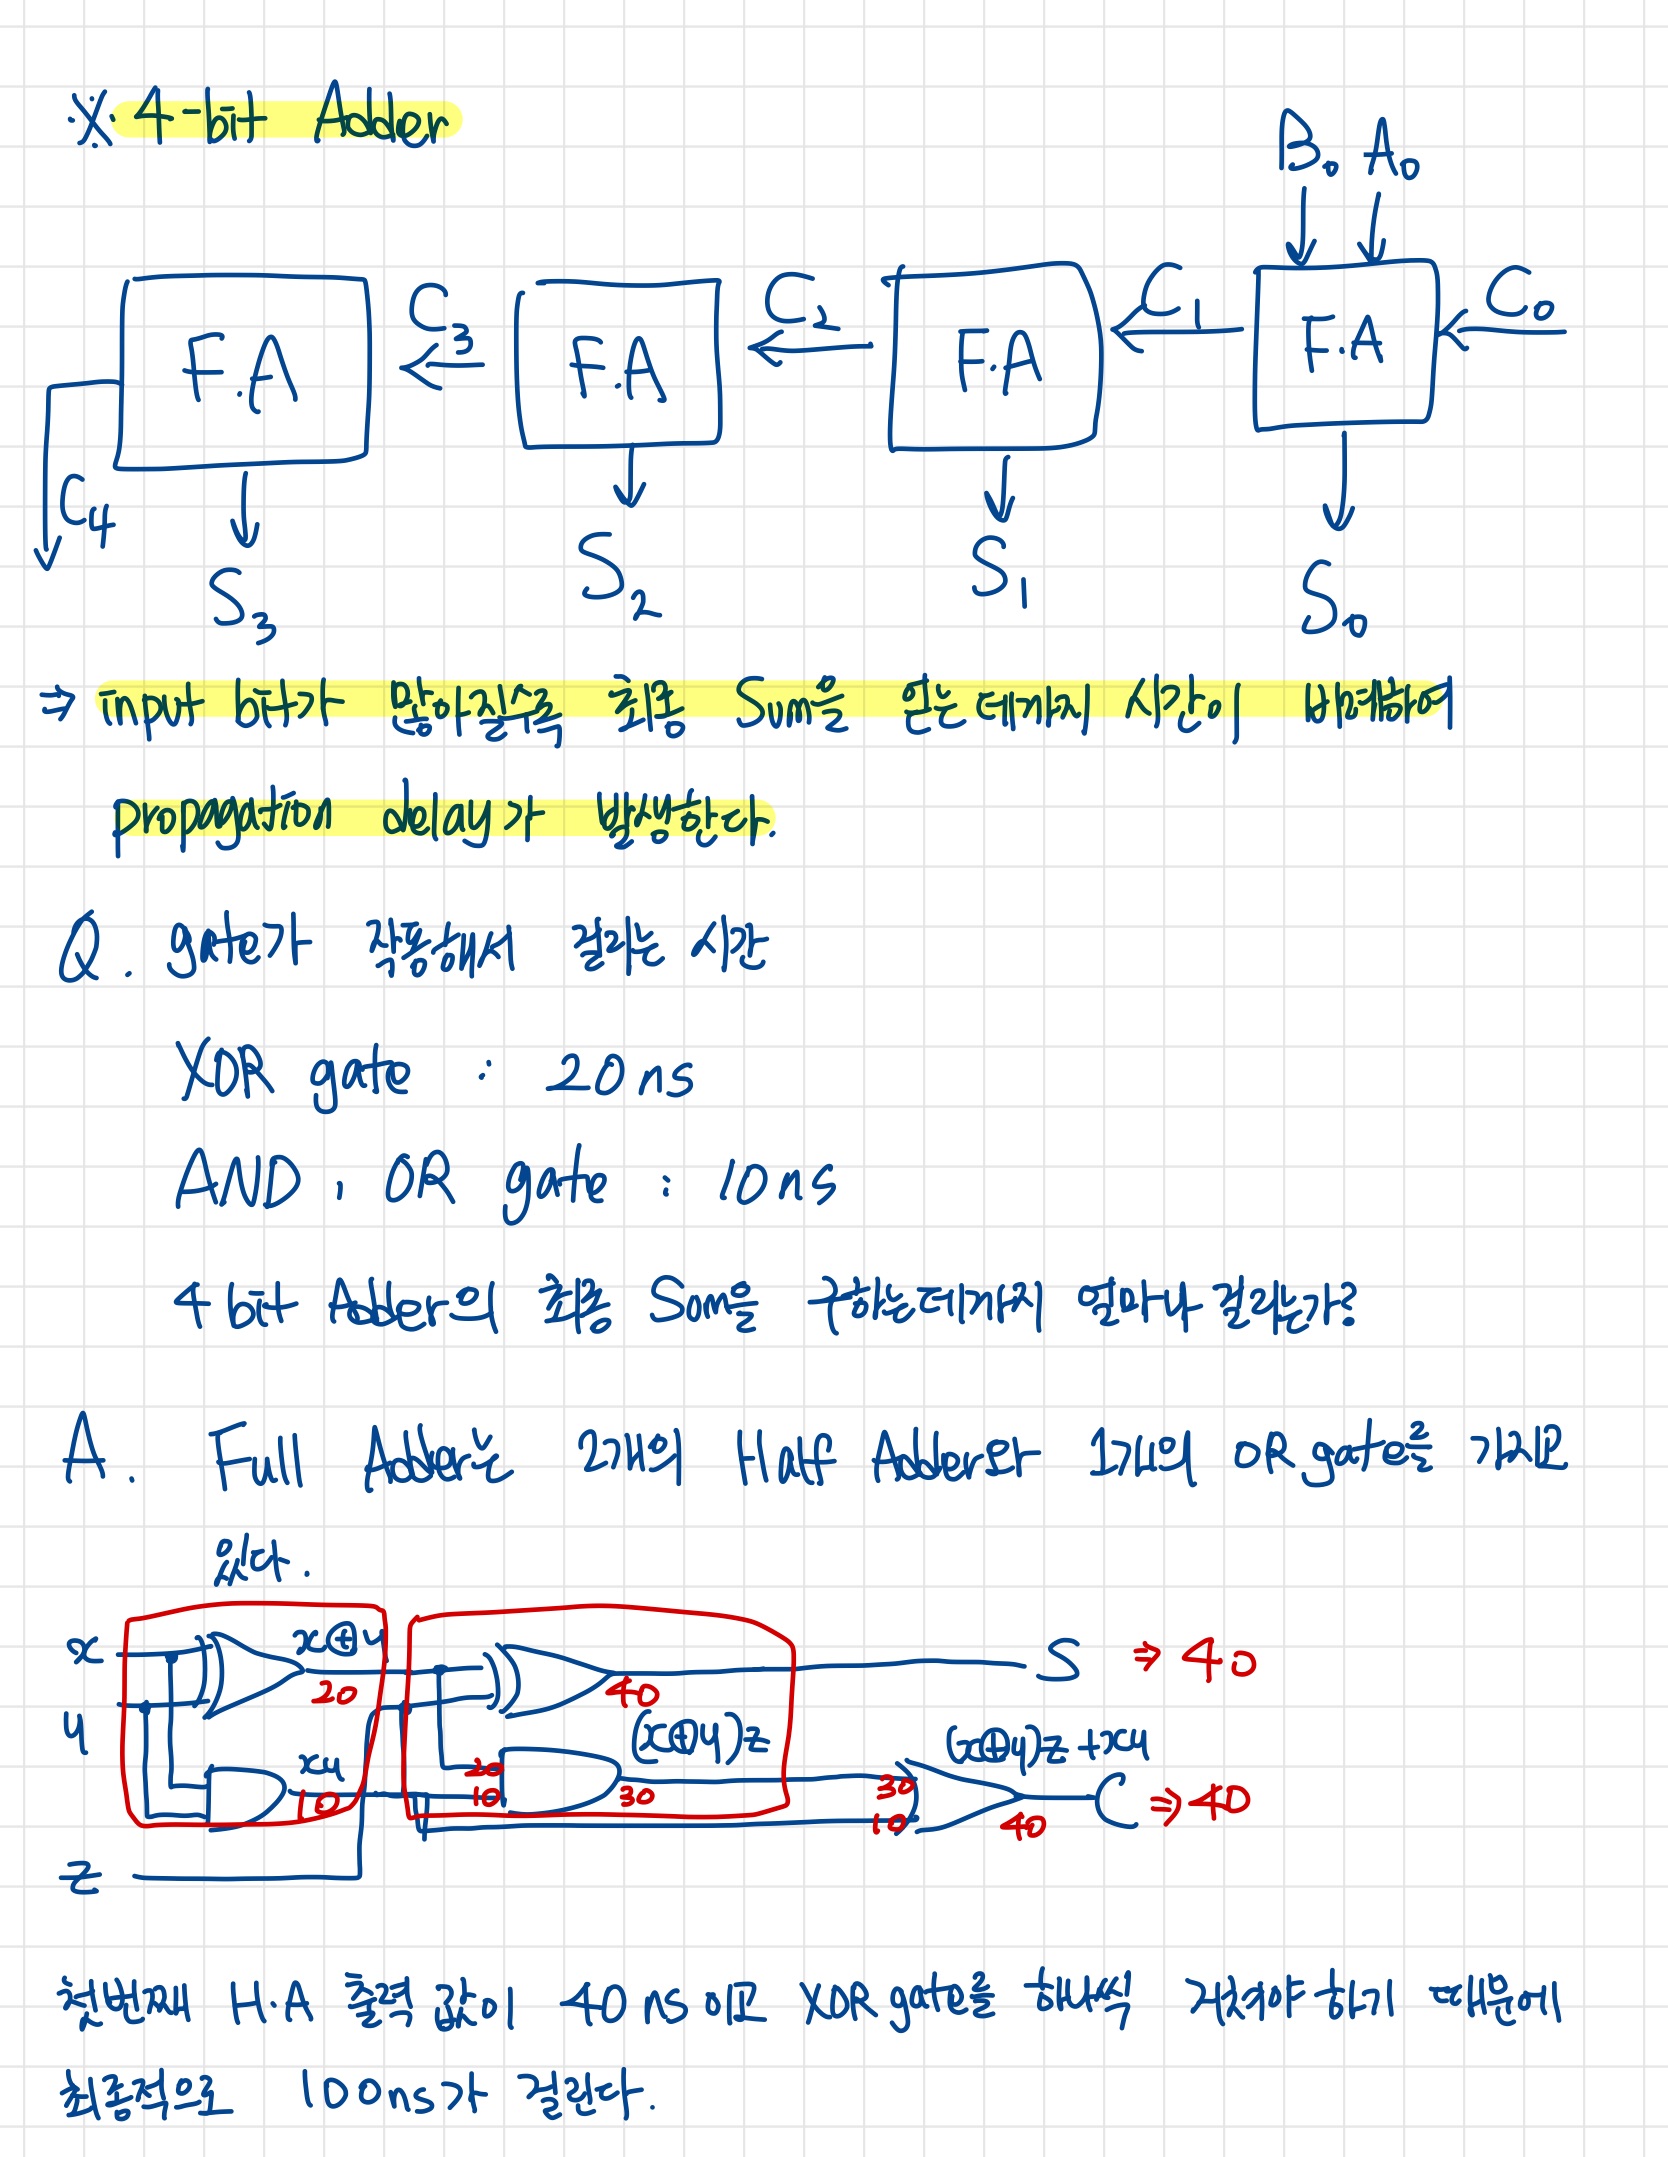 ※ 4-bit Adder
B₀ A₀
C₃ C₂ C₁ C₀
F.A F.A F.A F.A
C₄
S₃ S₂ S₁ S₀
⇒ input bit가 많아질수록 최종 Sum을 얻는데까지 시간이 비례하여
propagation delay가 발생한다.
Q. gate가 작동해서 걸리는 시간
XOR gate : 20ns
AND, OR gate : 10ns
4 bit Adder의 최종 Sum을 구하는데까지 얼마나 걸리는가?
A. Full Adder는 2개의 Half Adder와 1개의 OR gate를 가지고
있다.
x x⊕y S ⇒ 40
20 40
y (x⊕y)z (x⊕y)z+xy
xy 20 30
10 10 30 10 40 C ⇒ 40
z
첫번째 H.A 출력 값이 40ns이고 XOR gate를 하나씩 거쳐야 하기 때문에
최종적으로 100ns가 걸린다.